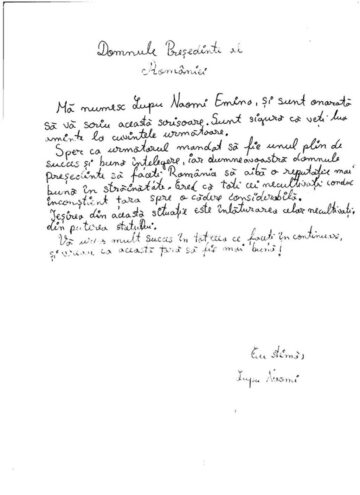 Domnule Președinte al
României
Mă numesc Lupu Naomi Emina, și sunt onorată
să vă scriu această scrisoare. Sunt sigură că veți lua
aminte la cuvintele următoare.
Sper ca următorul mandat să fie unul plin de
succes și bună înțelegere, iar dumneavoastră domnule
președinte să faceți România să aibă o reputație mai
bună în străinătate. Cred că toți cei necultivați conduc
inconștient țara spre o cădere considerabilă.
Ieșirea din această situație este înlăturarea celor necultivați
din puterea statului.
Vă urez mult succes în tot ceea ce faceți în continuare,
și vreau ca această țară să fie mai bună!
Cu stimă,
Lupu Naomi